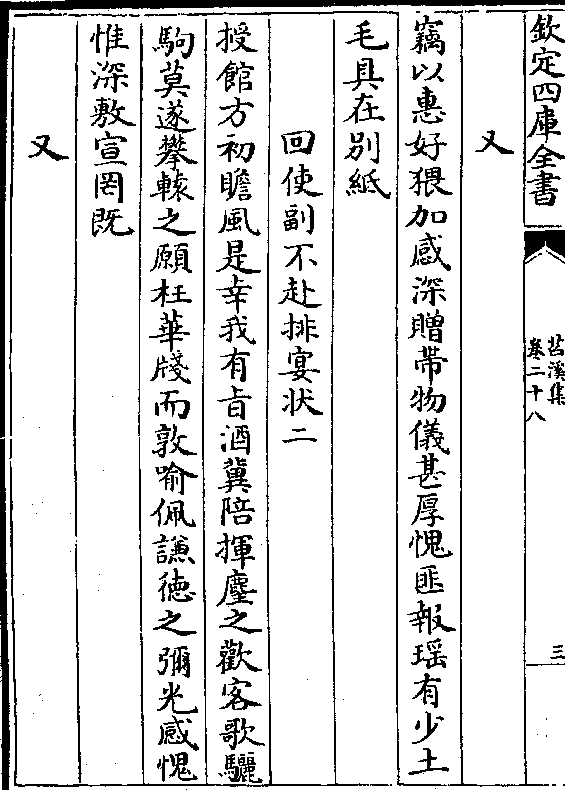 欽定四庫全書
苕溪集
卷二十八
三
又
竊以惠好猥加感深贈帶物儀甚厚愧匪報瑶有少土
毛具在別紙
回使副不赴排宴狀二
授館方初瞻風是幸我有旨酒冀陪揮麈之歡客歌驪
駒莫遂攀轅之願枉華牋而敦喻佩謙徳之彌光感愧
惟深敷宣罔既
又